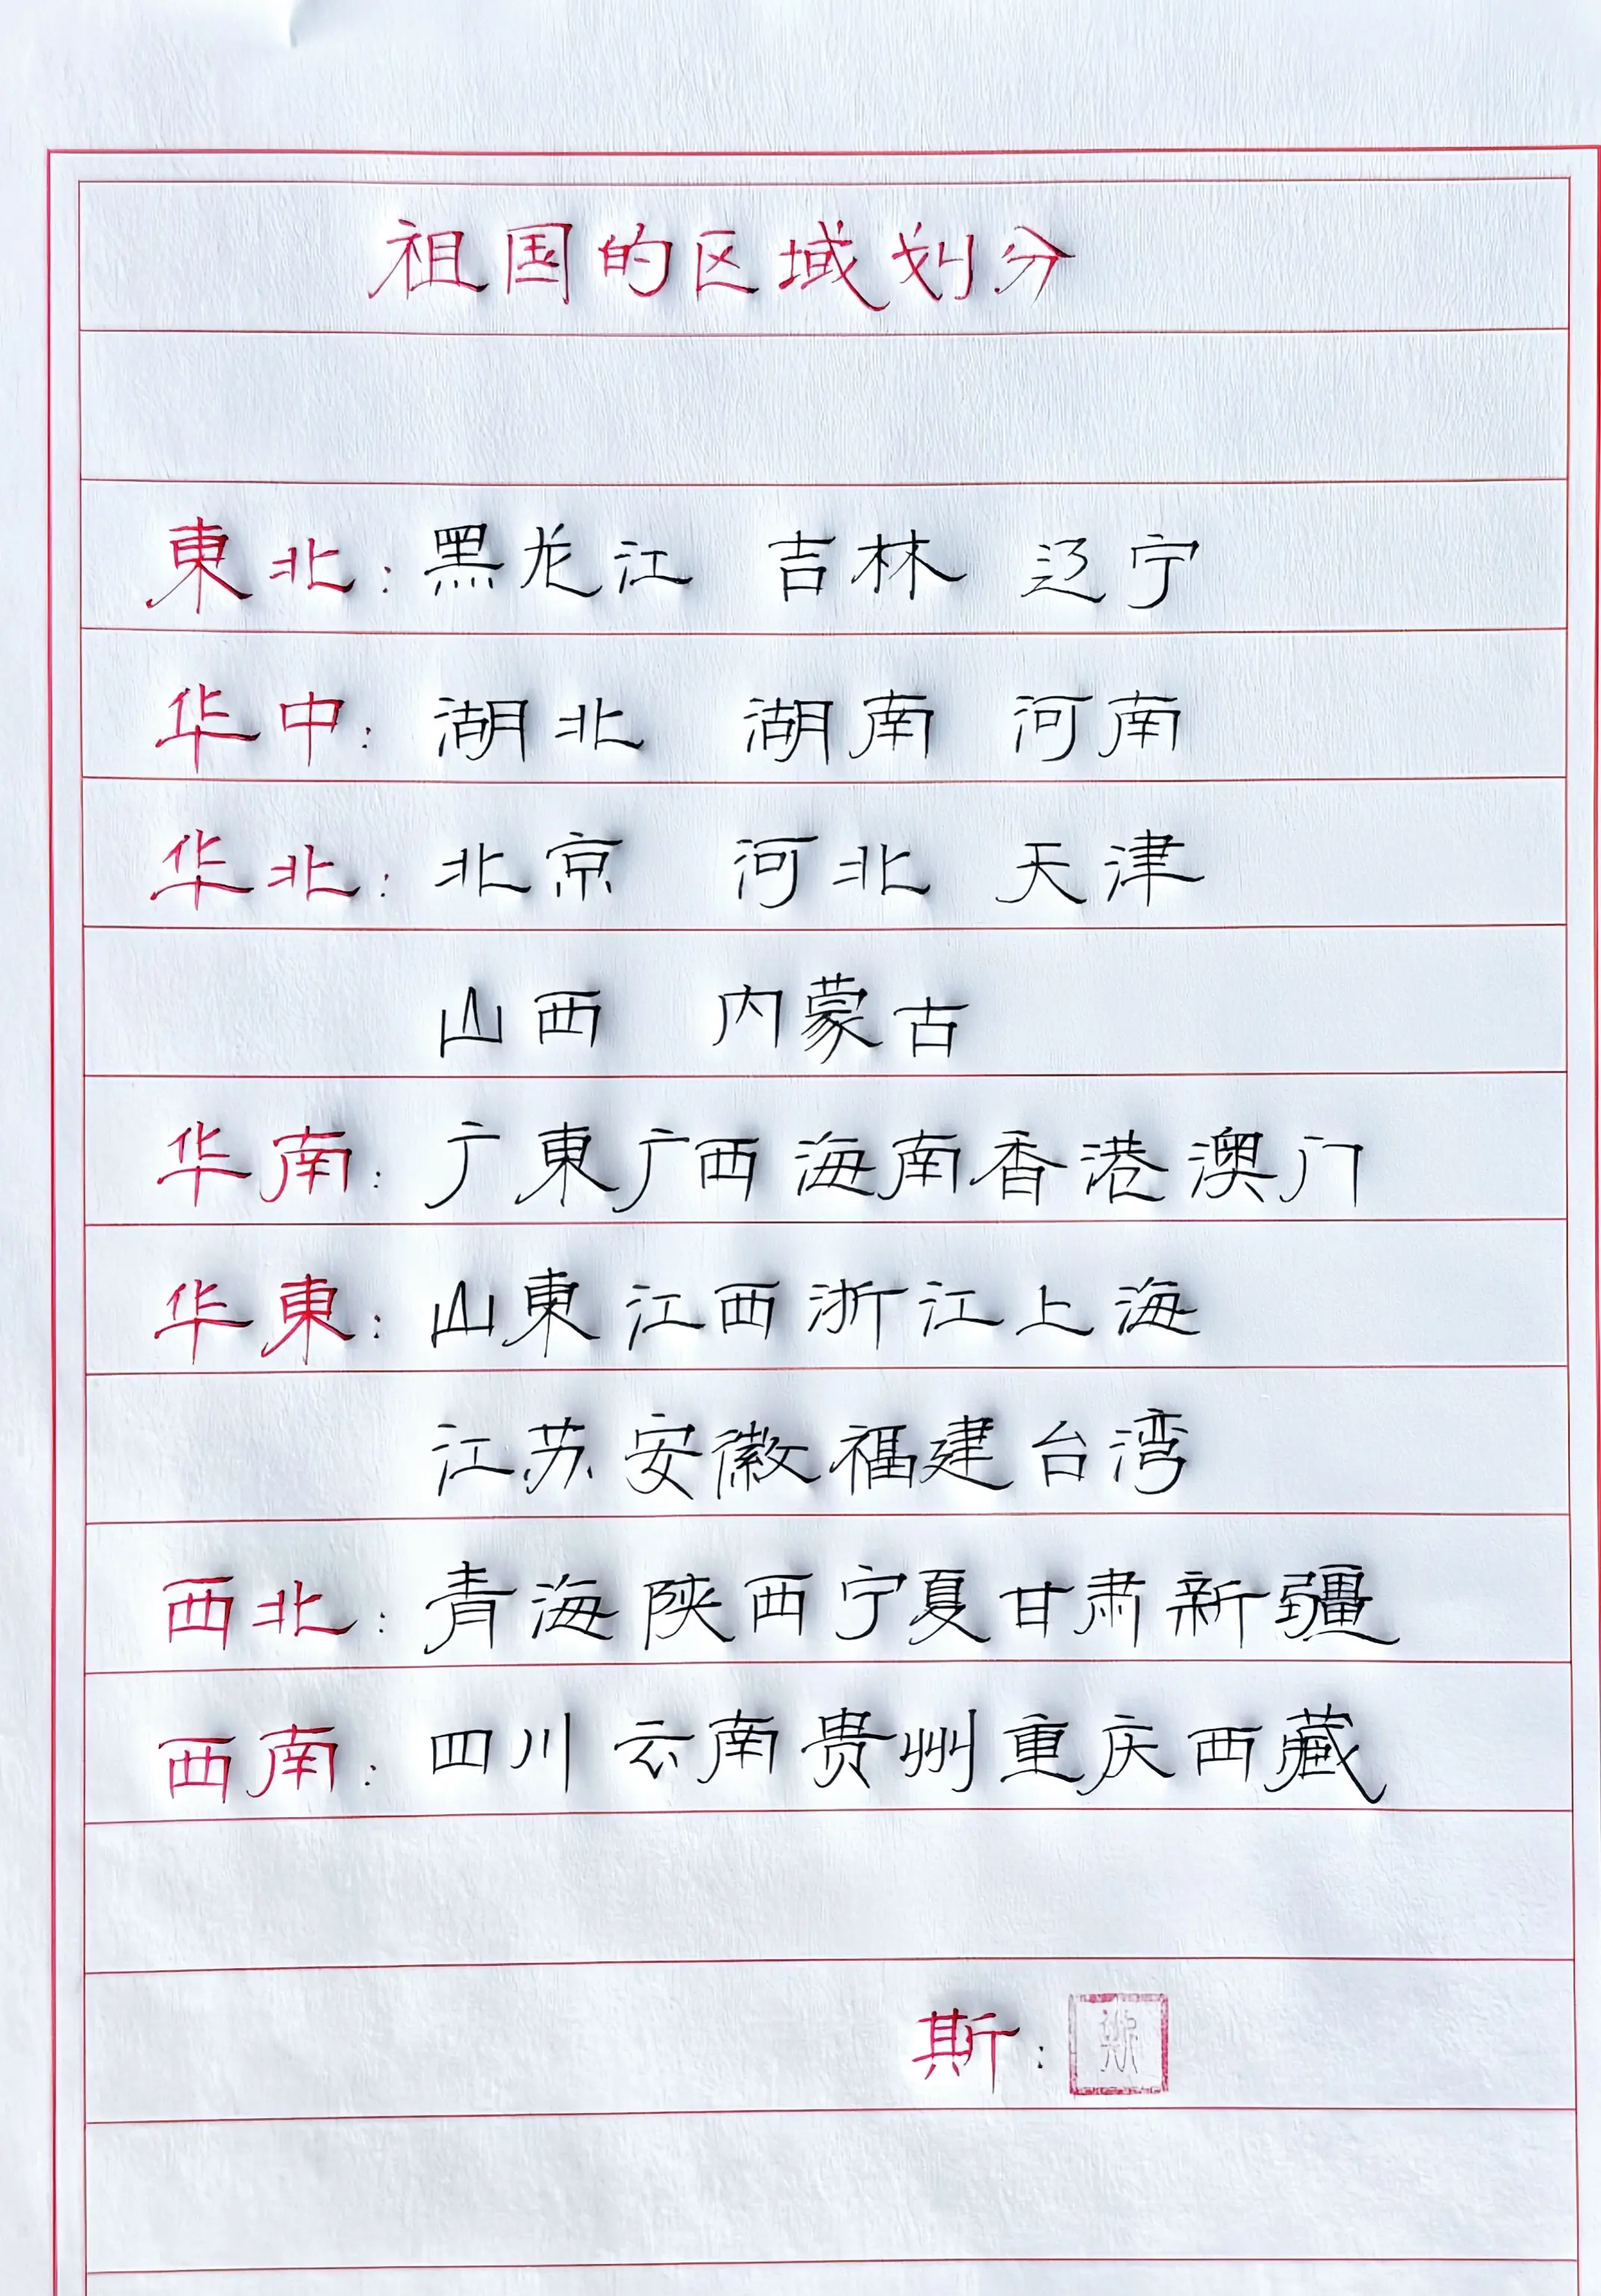 祖国的区域划分
東北：黑龙江 吉林 辽宁
华中：湖北 湖南 河南
华北：北京 河北 天津
山西 内蒙古
华南：广東广西海南香港澳门
华東：山東江西浙江上海
江苏安徽福建台湾
西北：青海陕西宁夏甘肃新疆
西南：四川云南贵州重庆西藏
斯：